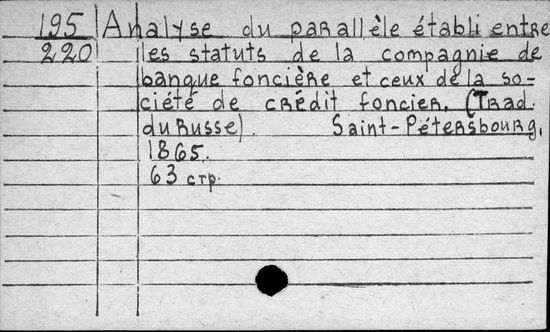 195 Analyse du parallèle établi entre
220 les statuts de la compagnie de
banque foncière et ceux de la so-
ciété de crédit foncier. (Trad.
du Russe). Saint-Pétersbourg,
1865.
63 стр.